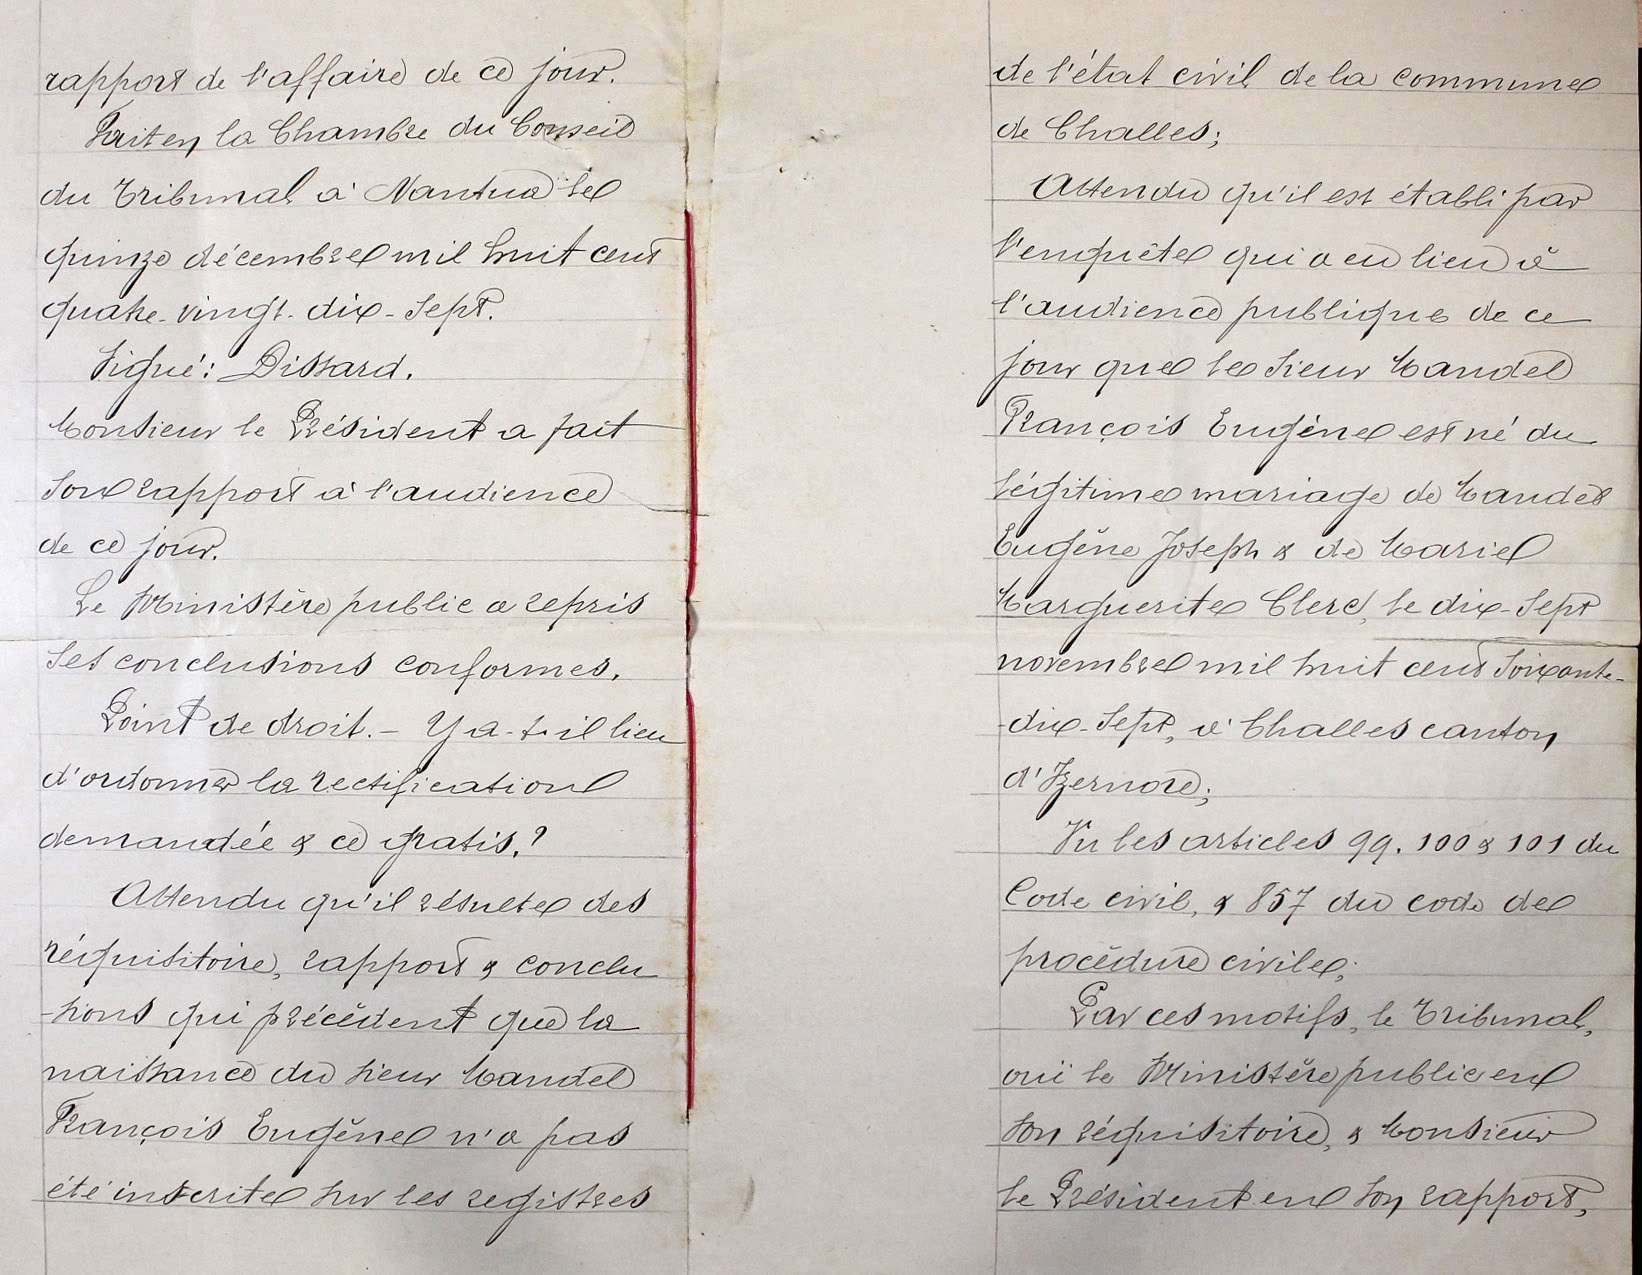 rapport de l'affaire de ce jour.
Fait en la Chambre du Conseil
du Tribunal à Nantua le
quinze décembre mil huit cent
quatre-vingt-dix-sept.
Signé: Dissard.
Monsieur le Président a fait
son rapport à l'audience
de ce jour.
Le Ministère public a repris
ses conclusions conformes.
Point de droit. – Y a-t-il lieu
d'ordonner la rectification
demandée & ce gratis.?
Attendu qu'il résulte des
réquisitoire, rapport & conclu
-sions qui précèdent que la
naissance du sieur Mandel
François Eugène n'a pas
été inscrite sur les registres
de l'état civil de la commune
de Challes;
Attendu qu'il est établi par
l'enquête qui a eu lieu à
l'audience publique de ce
jour que le sieur Mandel
François Eugène est né du
légitime mariage de Mandel
Eugène Joseph & de Marie
Marguerite Clerc, le dix-sept
novembre mil huit cent soixante-
-dix-sept, à Challes canton
d'Izernore;
Vu les articles 99. 100 & 101 du
Code civil, & 857 du code de
procédure civile;
Par ces motifs, le Tribunal,
ouï le Ministère public en
son réquisitoire, & Monsieur
le Président en son rapport,